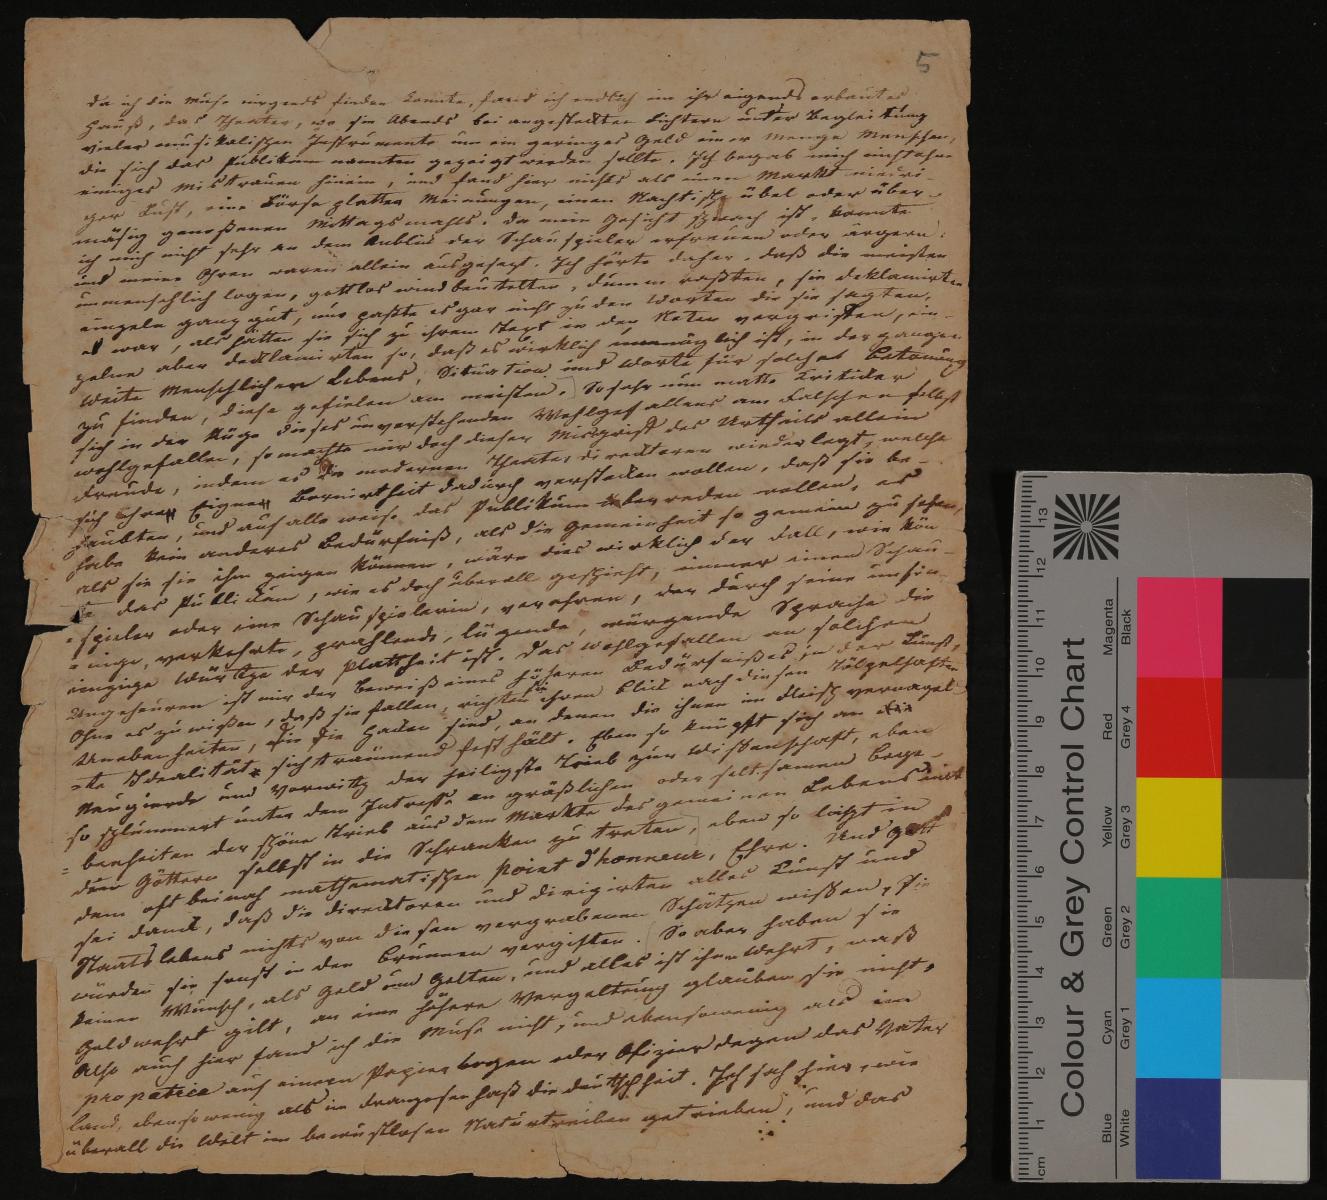 5
da ich die Muse nirgends finden konnte, fand ich endlich im ihr eigends erbautes
Hauß, das Theater, wo sie Abends bei angesteckten Lichtern unter Begleitung
vieler musikalischen Instrumente um ein geringes Geld einer Menge Menschen,
die sich das Publikum nannten gezeigt werden sollte. Ich begab mich nicht ohne
einiges Mistrauen hinein, und fand hier nichts als einen Markt niedri-
ger Lust, eine Börse platter Meinungen, einen Nachtisch übel oder über-
mäsig genoßenen Mittagsmahls. da mein Gesicht schwach ist, konnte
ich mich nicht sehr an dem Anblick der Schauspieler erfreuen oder ärgern:
und meine Ohren waren allein ausgesezt. Ich hörte daher, daß die meisten
unmenschlich logen, gottlos windbeutelten, dumm, sie deklamirten
einzeln ganz gut, nur paßte es gar nicht zu den Worten die sie sagten,
es war, als hätten sie sich zu ihrem Text in den Noten vergriffen, ein-
zelne aber decklamirten so, daß es wirklich unmöglich ist, in der ganzen
Weite Menschlichen Lebens, Situation und Worte für solche Betonung
zu finden, diese gefielen am meisten. So sehr nun matte Kritiker
sich in der Rüge dieses unverstehenden Wohlgefallens am Falschen selbst
wohlgefallen, so machte mir doch dieser Misgriff des Urtheils allein
Freude, indem es die modernen Theater direcktoren wiederlegt, welche
sich ihre Eigne Bornirtheit dadurch verstecken wollen, daß sie be-
haubten, und auf alle weise das Publikum überreden wollen, es
habe kein anderes Bedürfniß, als die Gemeinheit so gemein zu sehen,
als sie sie ihm zeigen können, wäre dies wirklich der Fall, wie kön
te das Publikum, wie es doch überall geschieht, immer einen Schau-
spieler oder eine Schauspielerin, verehren, der durch seine unsin-
nige, verkehrte, prahlende, lügende, würgende Sprache die
einzige Würtze der Plattheit ist. Das Wohlgefallen an solchen
Ungeheuren ist mir der Beweiß eines höheren Bedürfnißes in der Kunst,
Ohne es zu wißen, daß sie fallen, richten sie ihren Blick nach diesen Tölpelhaften
Unebenheiten, die die Haken sind, an denen die ihnen im Fleisch vernagel-
te Idealität sich träumend fest hält. Eben so knüpft sich an die
Neugierde und Vorwitz der heiligste Trieb zur Wissenschaft, eben
so schlummert unter dem Intresse an gräßlichen oder seltsamen Bege-
benheiten der schöne Trieb aus dem Markte des gemeinen Lebens mit
den Göttern selbst in die Schranken zu treten, eben so liegt in
dem oft beinah mathematischen point d'honneur, Ehre. Und Gott
sei dank, daß die direcktoren und dirigirten alles Kunst und
Staatslebens nichts von diesen vergrabenen Schätzen wissen, sie
würden sie sonst in den Brunnen vergiften. So aber haben sie
keinen Wunsch, als Geld und Gelten, und alles ist ihn Wehrt, waß
Geldwehrt gilt, an eine höhere Vergeltung glauben sie nicht,
Also auch hier fand ich die Muse nicht, und ebensowenig als im
pro patria auf einem Papierbogen oder Ofizier degen das Vater
land, ebensowenig als im Franzosenhaß die deutschheit. Ich sah hier, wie
überall die Welt im bewustlosen Naturtreiben getrieben, und das